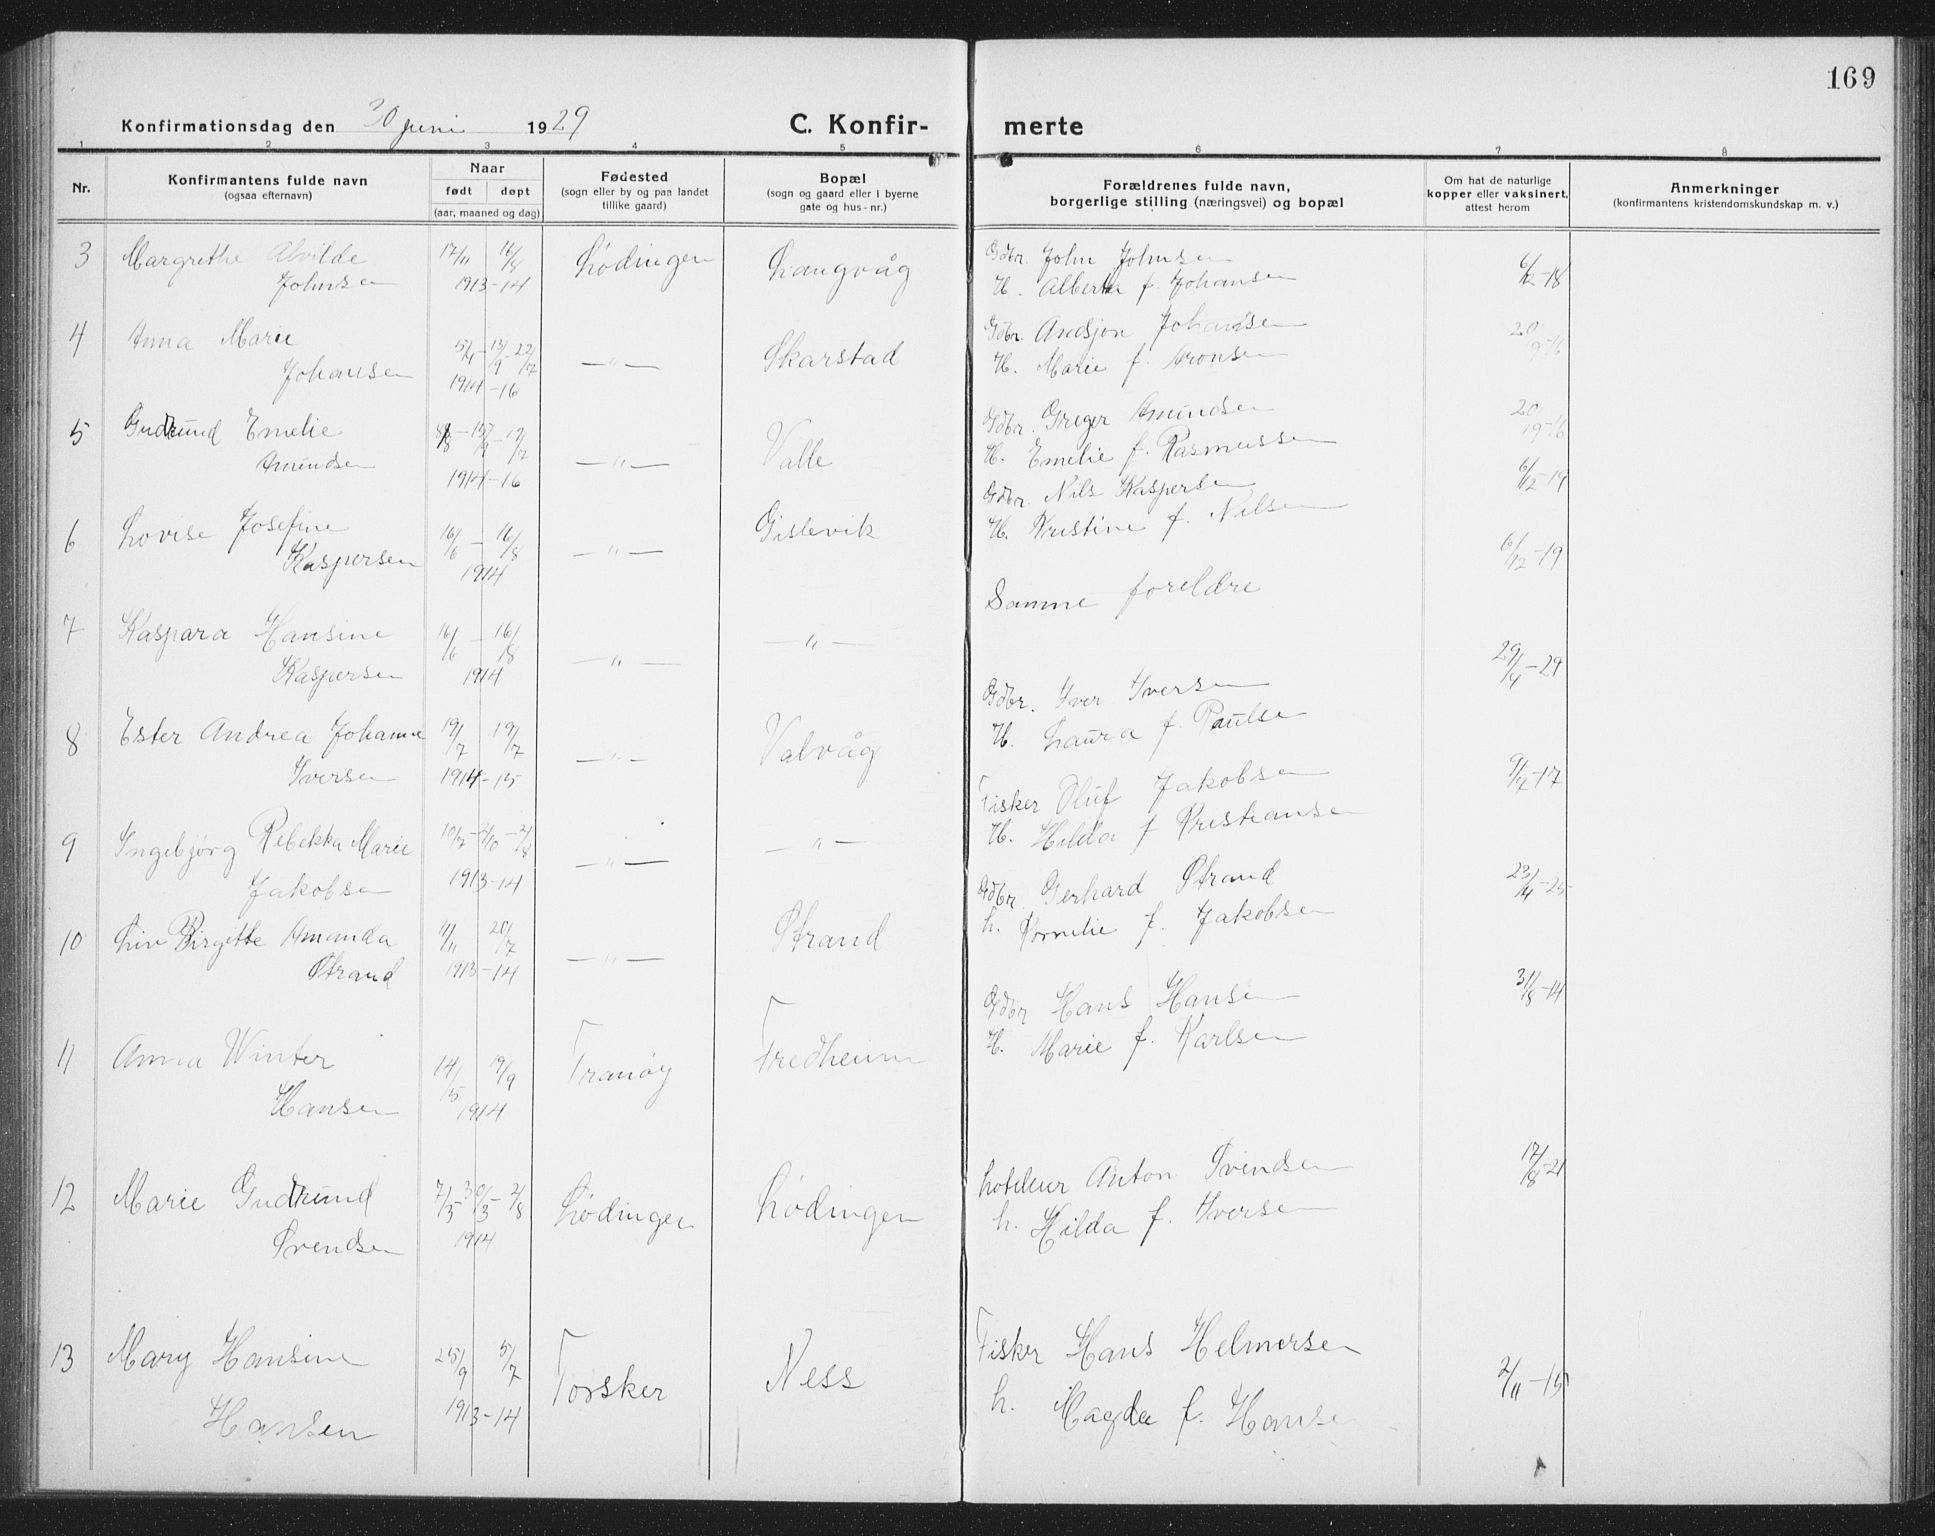 169
Konfirmationsdag den 30 juni 1929
C. Konfir- merte
1 2 3 4 5 6 7 8
Nr.
Konfirmantens fulde navn
(ogsaa efternavn)
Naar
født døpt
(aar, maaned og dag)
Fødested
(sogn eller by og paa landet
tillike gaard)
Bopæl
(sogn og gaard eller i byerne
gate og hus-nr.)
Forældrenes fulde navn,
borgerlige stilling (næringsvei) og bopæl
Om hat de naturlige
kopper eller vaksinert,
attest herom
Anmerkninger
(konfirmantens kristendomskundskap m. v.)
3 Margrethe Alvilde
Johnsen
17/11 16/8
1913-14
Lødingen
Langvåg
Gdbr. John Johnsen
H. Alberta f. Johansen
6/12-18
4 Anna Marie
Johansen
5/4-13/9-22/7
1914-16
—"—
Skarstad
Gdbr. Andsjon Johansen
H. Marie f. Aronsen
20/9-16
5 Gudrund Emelie
Amundsen
1914-16
—"—
Valle
Gdbr. Greger Amundsen
H. Emelie f. Rasmussen
20/19-16
6 Lovise Josefine
Kaspersen
16/6 — 16/8
1914
—"—
Gislevik
Gdbr Nils Kaspersen
H. Kristine f. Nilsen
6/12-19
7 Kaspara Hansine
Kaspersen
16/6 — 16/18
1914
—"—
—"—
Samme foreldre
6/12-19
8 Ester Andrea Johanne
Iversen
19/7 19/7
1914-15
—"—
Valvåg
Gdbr. Iver Iversen
H. Laura f. Paulse
29/4-29
9 Ingebjørg Rebekka Marie
Jakobsen
10/12-2/10-2/8
1913-14
—"—
—"—
Fisker Oluf Jakobsen
H. Hilda f Kristiansen
9/4-17
10 Liv Birgitte Amanda
Strand
11/11 20/7
1913-14
—"—
Strand
Gdbr. Gerhard Strand
h. Kornelie f. Jakobsen
23/4-25
11 Anna Winter
Hansen
14/5 19/9
1914
Tranøy
Fredheim
Gdbr Hans Hansen
H. Marie f. Karlsen
31/8-14
12 Marie Gudrund
Svendsen
7/3-30/3-2/8
1914
Lødingen
Lødingen
hoteleur Anton Svendsen
h. Hilda f. Iversen
17/8-21
13 Mary Hansine
Hansen
25/9 5/7
1913-14
Torsker
Ness
Fisker Hans Helmersen
h. Magda f. Hanse
2/11-15